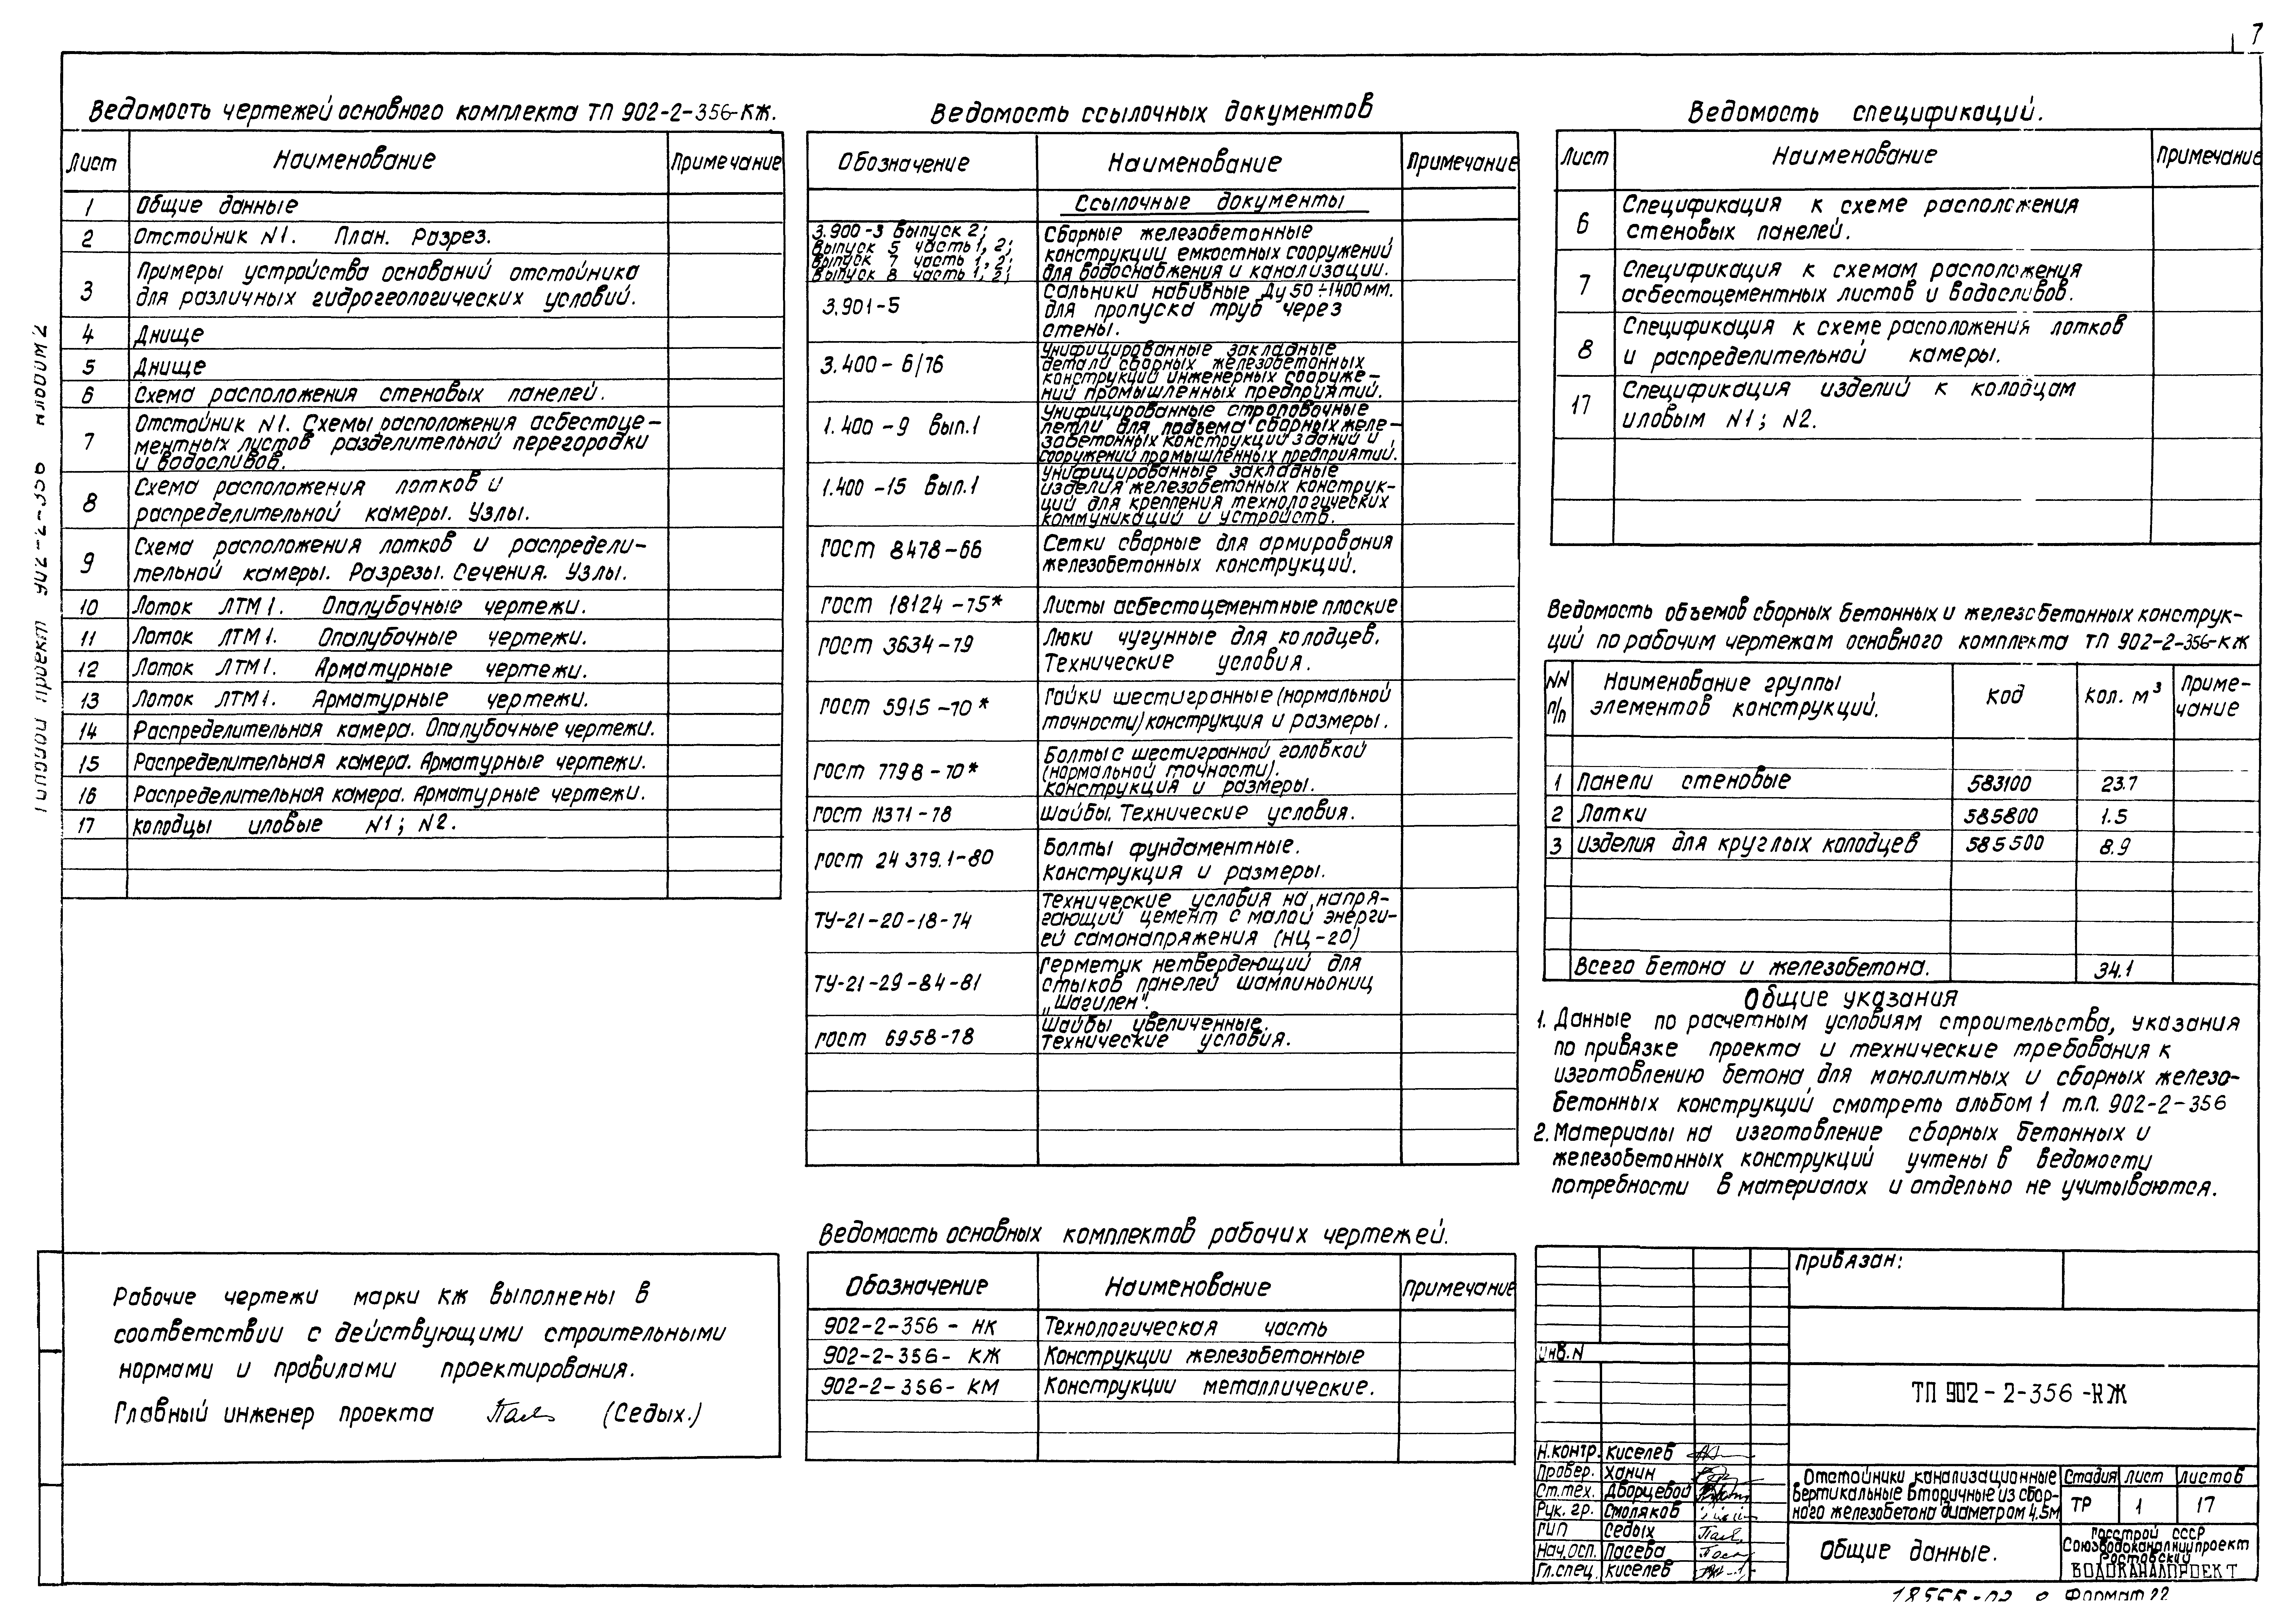 7
Ведомость чертежей основного комплекта ТП 902-2-356-КЖ.
Лист Наименование Примечание
1 Общие данные
2 Отстойник N1. План. Разрез.
3 Примеры устройства оснований отстойника
для различных гидрогеологических условий.
4 Днище
5 Днище
6 Схема расположения стеновых панелей.
7 Отстойник N1. Схемы расположения асбестоце-
ментных листов разделительной перегородки
и водосливов.
8 Схема расположения лотков и
распределительной камеры. Узлы.
9 Схема расположения лотков и распредели-
тельной камеры. Разрезы. Сечения. Узлы.
10 Лоток ЛТМ1. Опалубочные чертежи.
11 Лоток ЛТМ1. Опалубочные чертежи.
12 Лоток ЛТМ1. Арматурные чертежи.
13 Лоток ЛТМ1. Арматурные чертежи.
14 Распределительная камера. Опалубочные чертежи.
15 Распределительная камера. Арматурные чертежи.
16 Распределительная камера. Арматурные чертежи.
17 Колодцы иловые N1; N2.
Рабочие чертежи марки КЖ выполнены в
соответствии с действующими строительными
нормами и правилами проектирования.
Главный инженер проекта (Седых.)
Ведомость ссылочных документов
Обозначение Наименование Примечание
Ссылочные документы
3.900-3 Выпуск 2;
Выпуск 5 часть 1, 2;
Выпуск 7 часть 1, 2;
Выпуск 8 часть 1, 2;
Сборные железобетонные
конструкции емкостных сооружений
для водоснабжения и канализации.
3.901-5 Сальники набивные Ду 50÷1400 мм.
для пропуска труб через
стены.
3.400-6/76 Унифицированные закладные
детали сборных железобетонных
конструкций инженерных сооруже-
ний промышленных предприятий.
1.400-9 Вып.1 Унифицированные строповочные
петли для подъема сборных желе-
забетонных конструкций зданий и
сооружений промышленных предприятий.
1.400-15 Вып.1 Унифицированные закладные
изделия железобетонных конструк-
ций для крепления технологических
коммуникаций и устройств.
ГОСТ 8478-66 Сетки сварные для армирования
железобетонных конструкций.
ГОСТ 18124-75* Листы асбестоцементные плоские
ГОСТ 3634-79 Люки чугунные для колодцев.
Технические условия.
ГОСТ 5915-70* Гайки шестигранные (нормальной
точности) конструкция и размеры.
ГОСТ 7798-70* Болты с шестигранной головкой
(нормальной точности).
Конструкция и размеры.
ГОСТ 11371-78 Шайбы. Технические условия.
ГОСТ 24 379.1-80 Болты фундаментные.
Конструкция и размеры.
ТУ-21-20-18-74 Технические условия на напря-
гающий цемент с малой энерги-
ей самонапряжения (НЦ-20)
ТУ-21-29-84-81 Герметик нетвердеющий для
стыков панелей шампиньониц
„Шагилен".
ГОСТ 6958-78 Шайбы увеличенные.
Технические условия.
Ведомость основных комплектов рабочих чертежей.
Обозначение Наименование Примечание
902-2-356-НК Технологическая часть
902-2-356-КЖ Конструкции железобетонные
902-2-356-КМ Конструкции металлические.
Ведомость спецификаций.
Лист Наименование Примечание
6 Спецификация к схеме расположения
стеновых панелей.
7 Спецификация к схемам расположения
асбестоцементных листов и водосливов.
8 Спецификация к схеме расположения лотков
и распределительной камеры.
17 Спецификация изделий к колодцам
иловым N1; N2.
Ведомость объемов сборных бетонных и железобетонных конструк-
ций по рабочим чертежам основного комплекта ТП 902-2-356-КЖ
NN п/п Наименование группы элементов конструкций. Код Кол. м³ Приме-
чание
1 Панели стеновые 583100 23.7
2 Лотки 585800 1.5
3 Изделия для круглых колодцев 585500 8.9
Всего бетона и железобетона. 34.1
Общие указания
1. Данные по расчетным условиям строительства, указания
по привязке проекта и технические требования к
изготовлению бетона для монолитных и сборных железо-
бетонных конструкций смотреть альбом 1 т.п. 902-2-356
2. Материалы на изготовление сборных бетонных и
железобетонных конструкций учтены в ведомости
потребности в материалах и отдельно не учитываются.
Привязан:
Инв. N
ТП 902-2-356-КЖ
Н.контр. Киселев
Провер. Ханин
Ст.тех. Дворцевой
Рук. гр. Смоляков
ГИП Седых
Нач.осп. Пасева
Гл.спец. Киселев
Отстойники канализационные
вертикальные вторичные из сбор-
ного железобетона диаметром 4.5м
Стадия Лист Листов
ТР 1 17
Общие данные.
Госстрой СССР
Союзводоканалниипроект
Ростовский
ВОДОКАНАЛПРОЕКТ
Формат 22